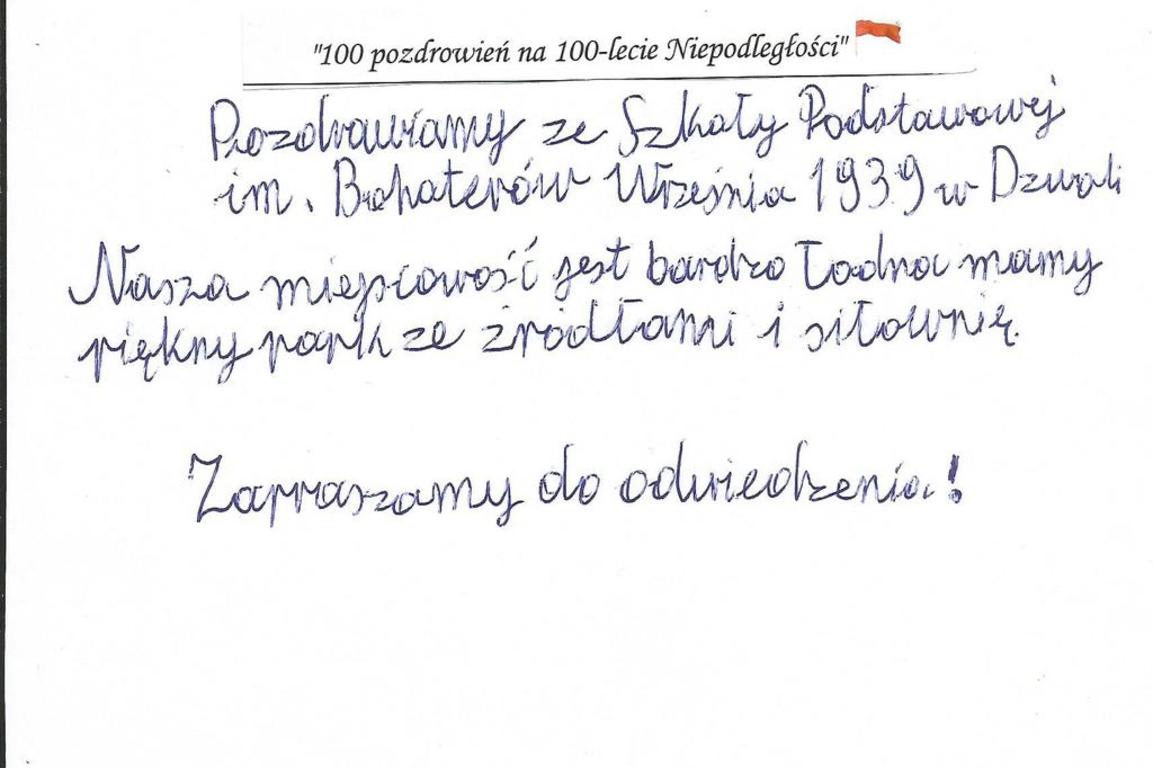 "100 pozdrowień na 100-lecie Niepodległości"
Pozdrawiamy ze Szkoły Podstawowej
im. Bohaterów Września 1939 w Dzwoli
Nasza miejscowość jest bardzo ładna mamy
piękny park ze źródłami i siłownię.
Zapraszamy do odwiedzenia!